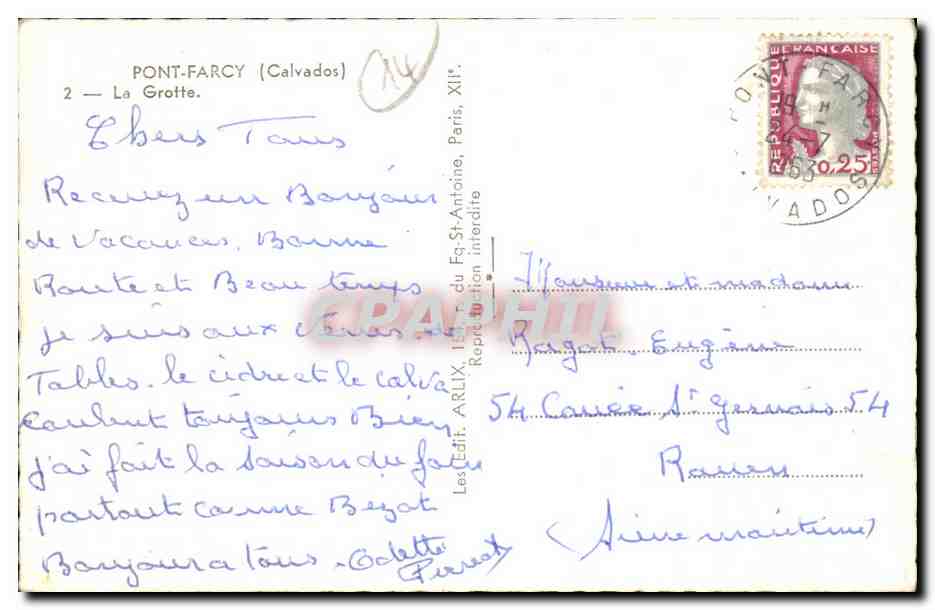 PONT-FARCY (Calvados)
2 — La Grotte.
14
Chers Tous
Recevez un Bonjour
de Vacances. Bonne
Route et Beau temps
je suis aux
Tables. le cidre et le calva
coulent toujours Bien
j'ai fait la saison du foin
partout comme
Bonjour a tous. Odette
Pierrot
Les Edit. ARLIX, du Fg-St-Antoine, Paris, XIIe.
Reproduction interdite
REPUBLIQUE FRANÇAISE
0,25
PONT FARCY
CALVADOS
Monsieur et madame
Ragot. Eugène
54 St Gervais 54
Rouen
(Seine maritime)
CPAPHIL